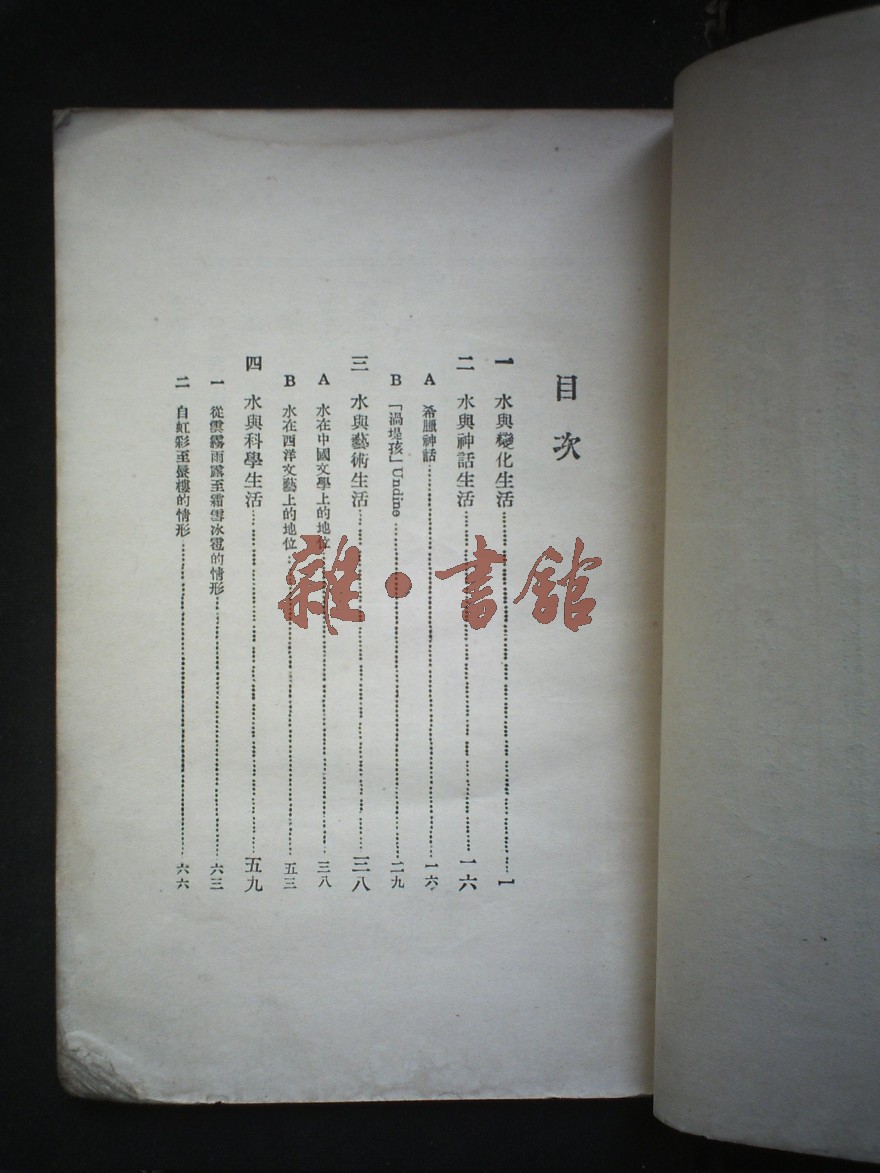 目次
一 水與變化生活……一
二 水與神話生活……一六
A 希臘神話……一六
B 「渦堤孩」Undine……二九
三 水與藝術生活……三八
A 水在中國文學上的地位……三八
B 水在西洋文藝上的地位……五三
四 水與科學生活……五九
一 從雲霧雨露至霜雪冰雹的情形……六三
二 自虹彩至蜃樓的情形……六六
雜·書館